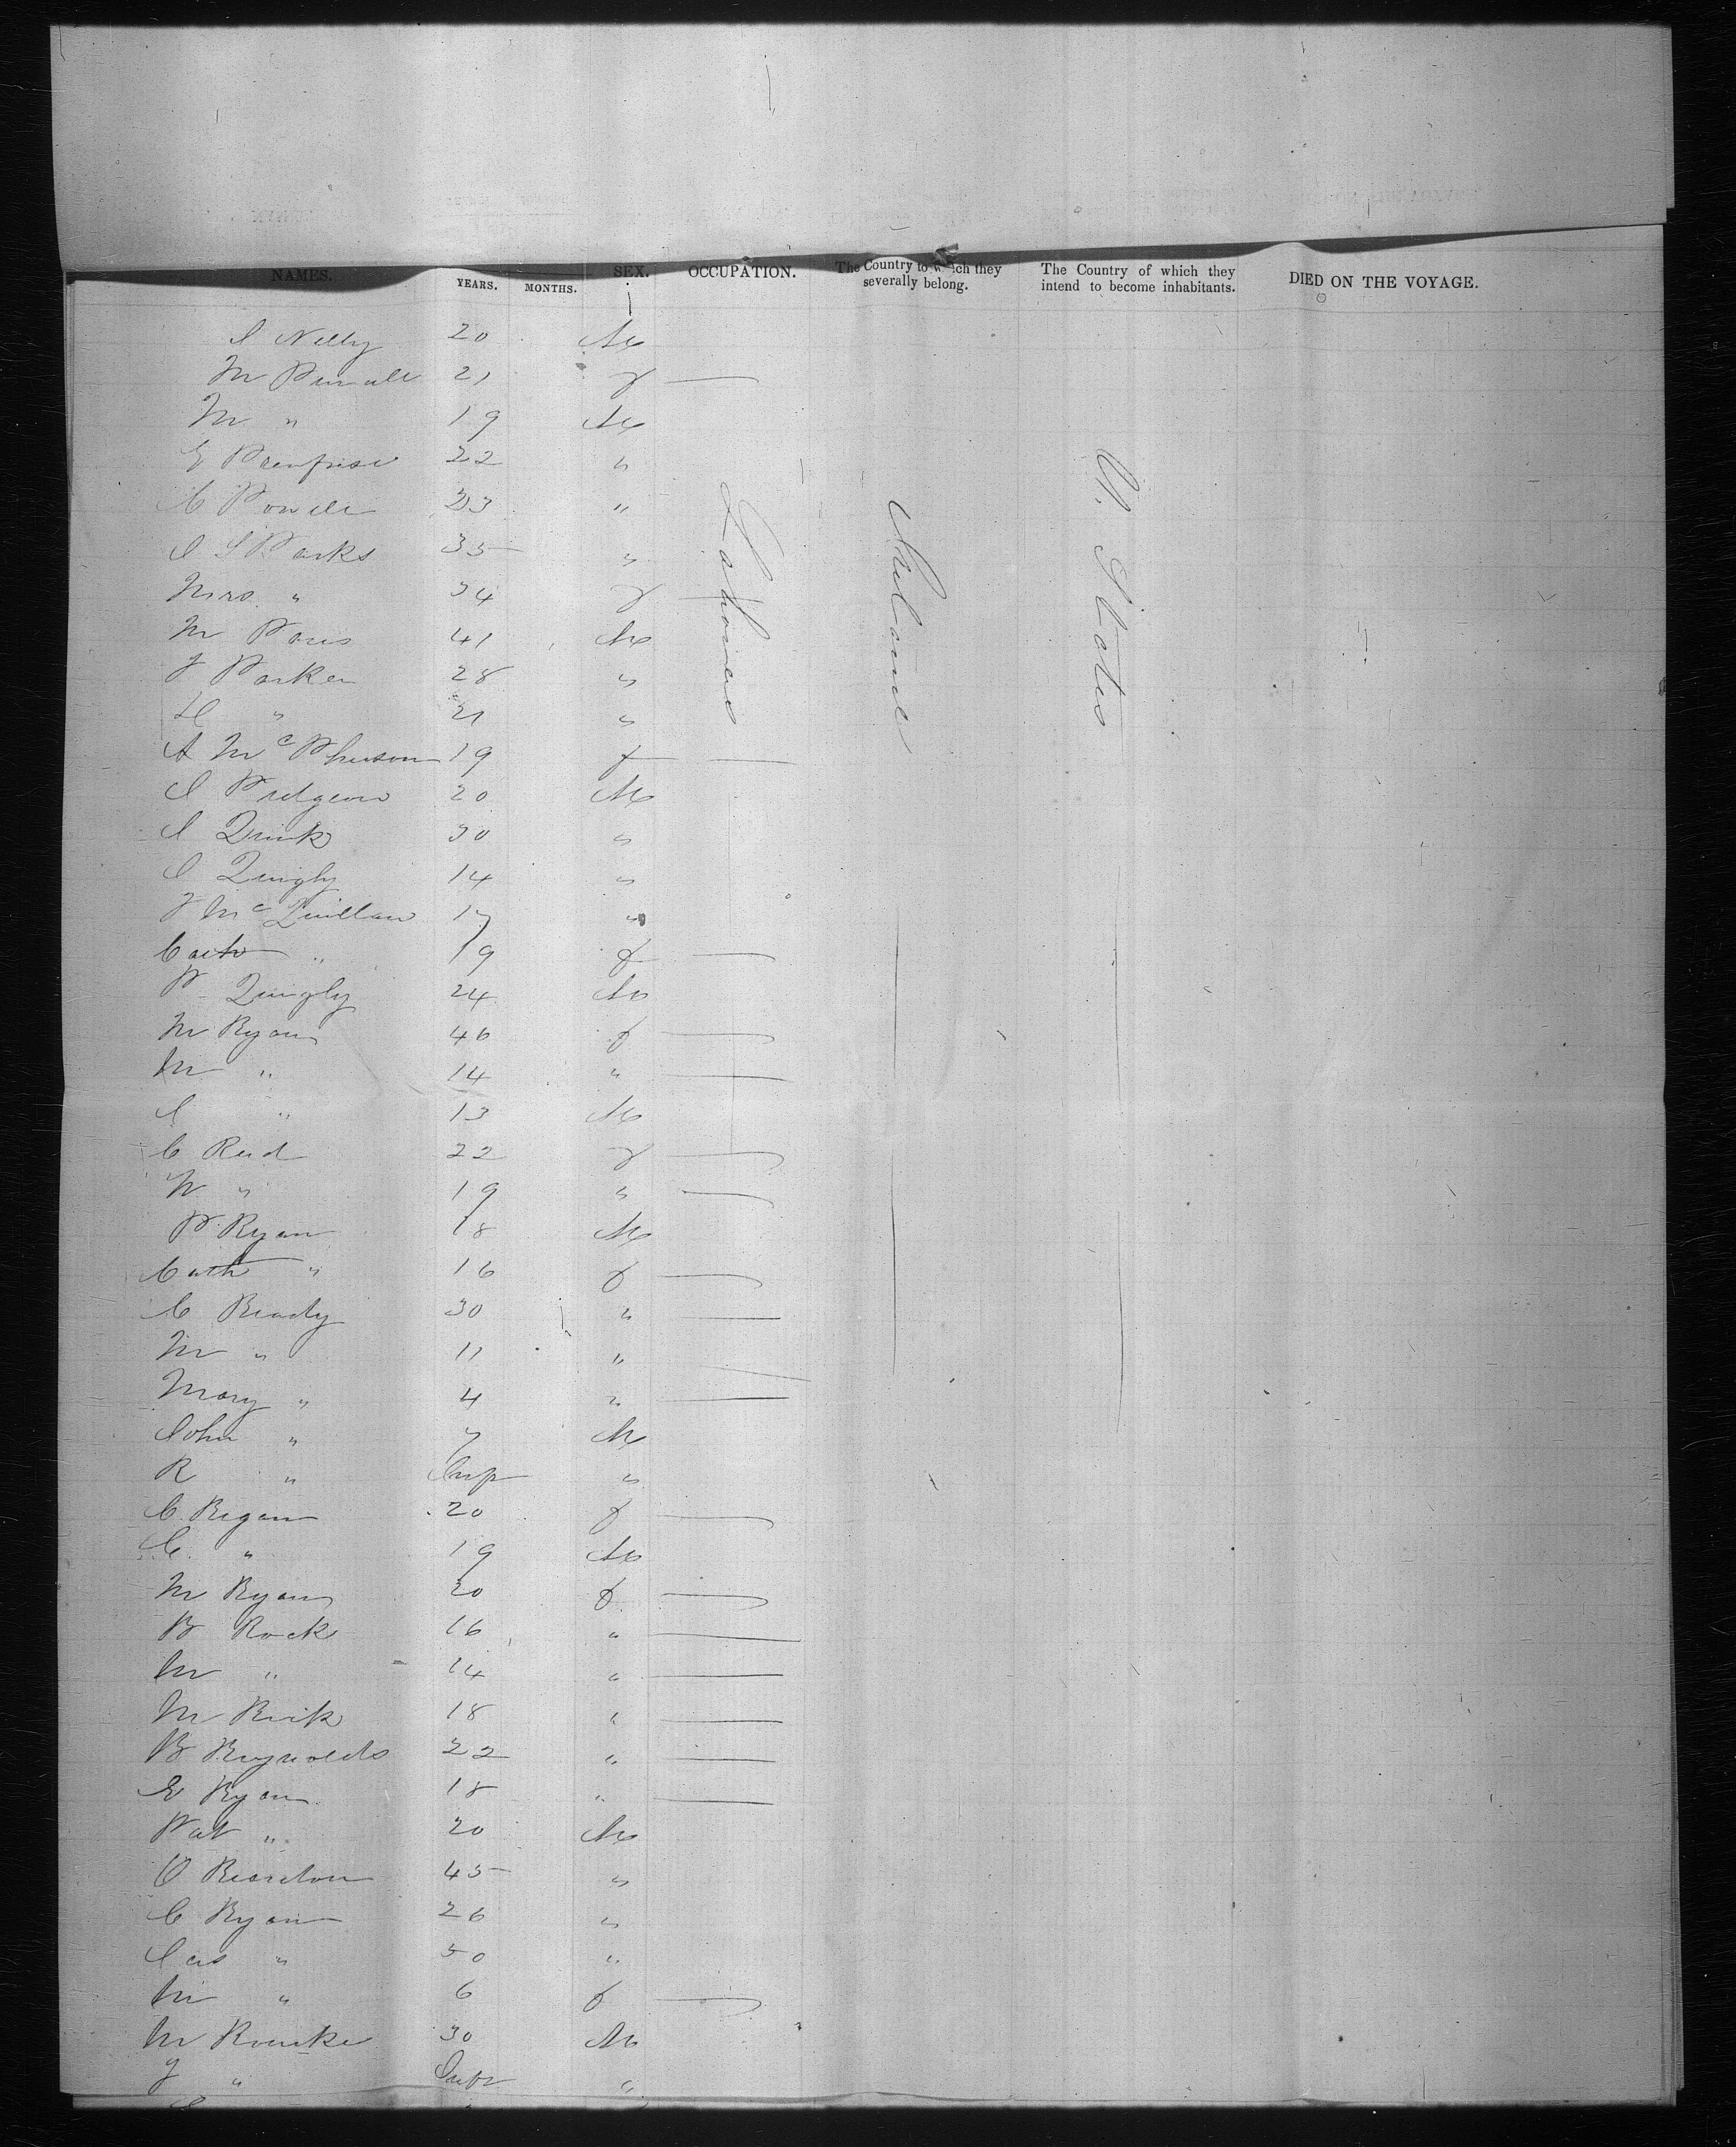 NAMES. YEARS. MONTHS. SEX. OCCUPATION. The Country to which they severally belong. The Country of which they intend to become inhabitants. DIED ON THE VOYAGE.
J Nelly 20 M
M 21 f —
M " 19 M
E 22 "
C Powell 23 "
J S Parks 35 "
Mrs " 34 f —
M 41 M
J Parker 28 "
H " 21 "
Laborers Ireland U. States
A McPherson 19 f —
J Pridgeon 20 M
J Quirk 30 "
J Quigly 14 "
J McQuillan 17 "
Cath " 19 f —
P Quigly 24 M
M Ryan 46 f —
M " 14 " —
J " 13 M
C Reid 22 f —
" 19 " —
P Ryan 18 M
Cath " 16 f —
C Ready 30 " —
M " 11 " —
Mary " 4 " —
John " 7 M
R " Inf "
C Regan 20 f —
C " 19 M
M Ryan 20 f —
B Rock 16 " —
M " 14 " —
M 18 " —
B Reynolds 22 " —
E Ryan 18 " —
Pat " 20 M
O Reardon 45 "
C Ryan 26 "
Jas " 50 "
M " 6 f —
M Rourke 30 M
J " Inft "